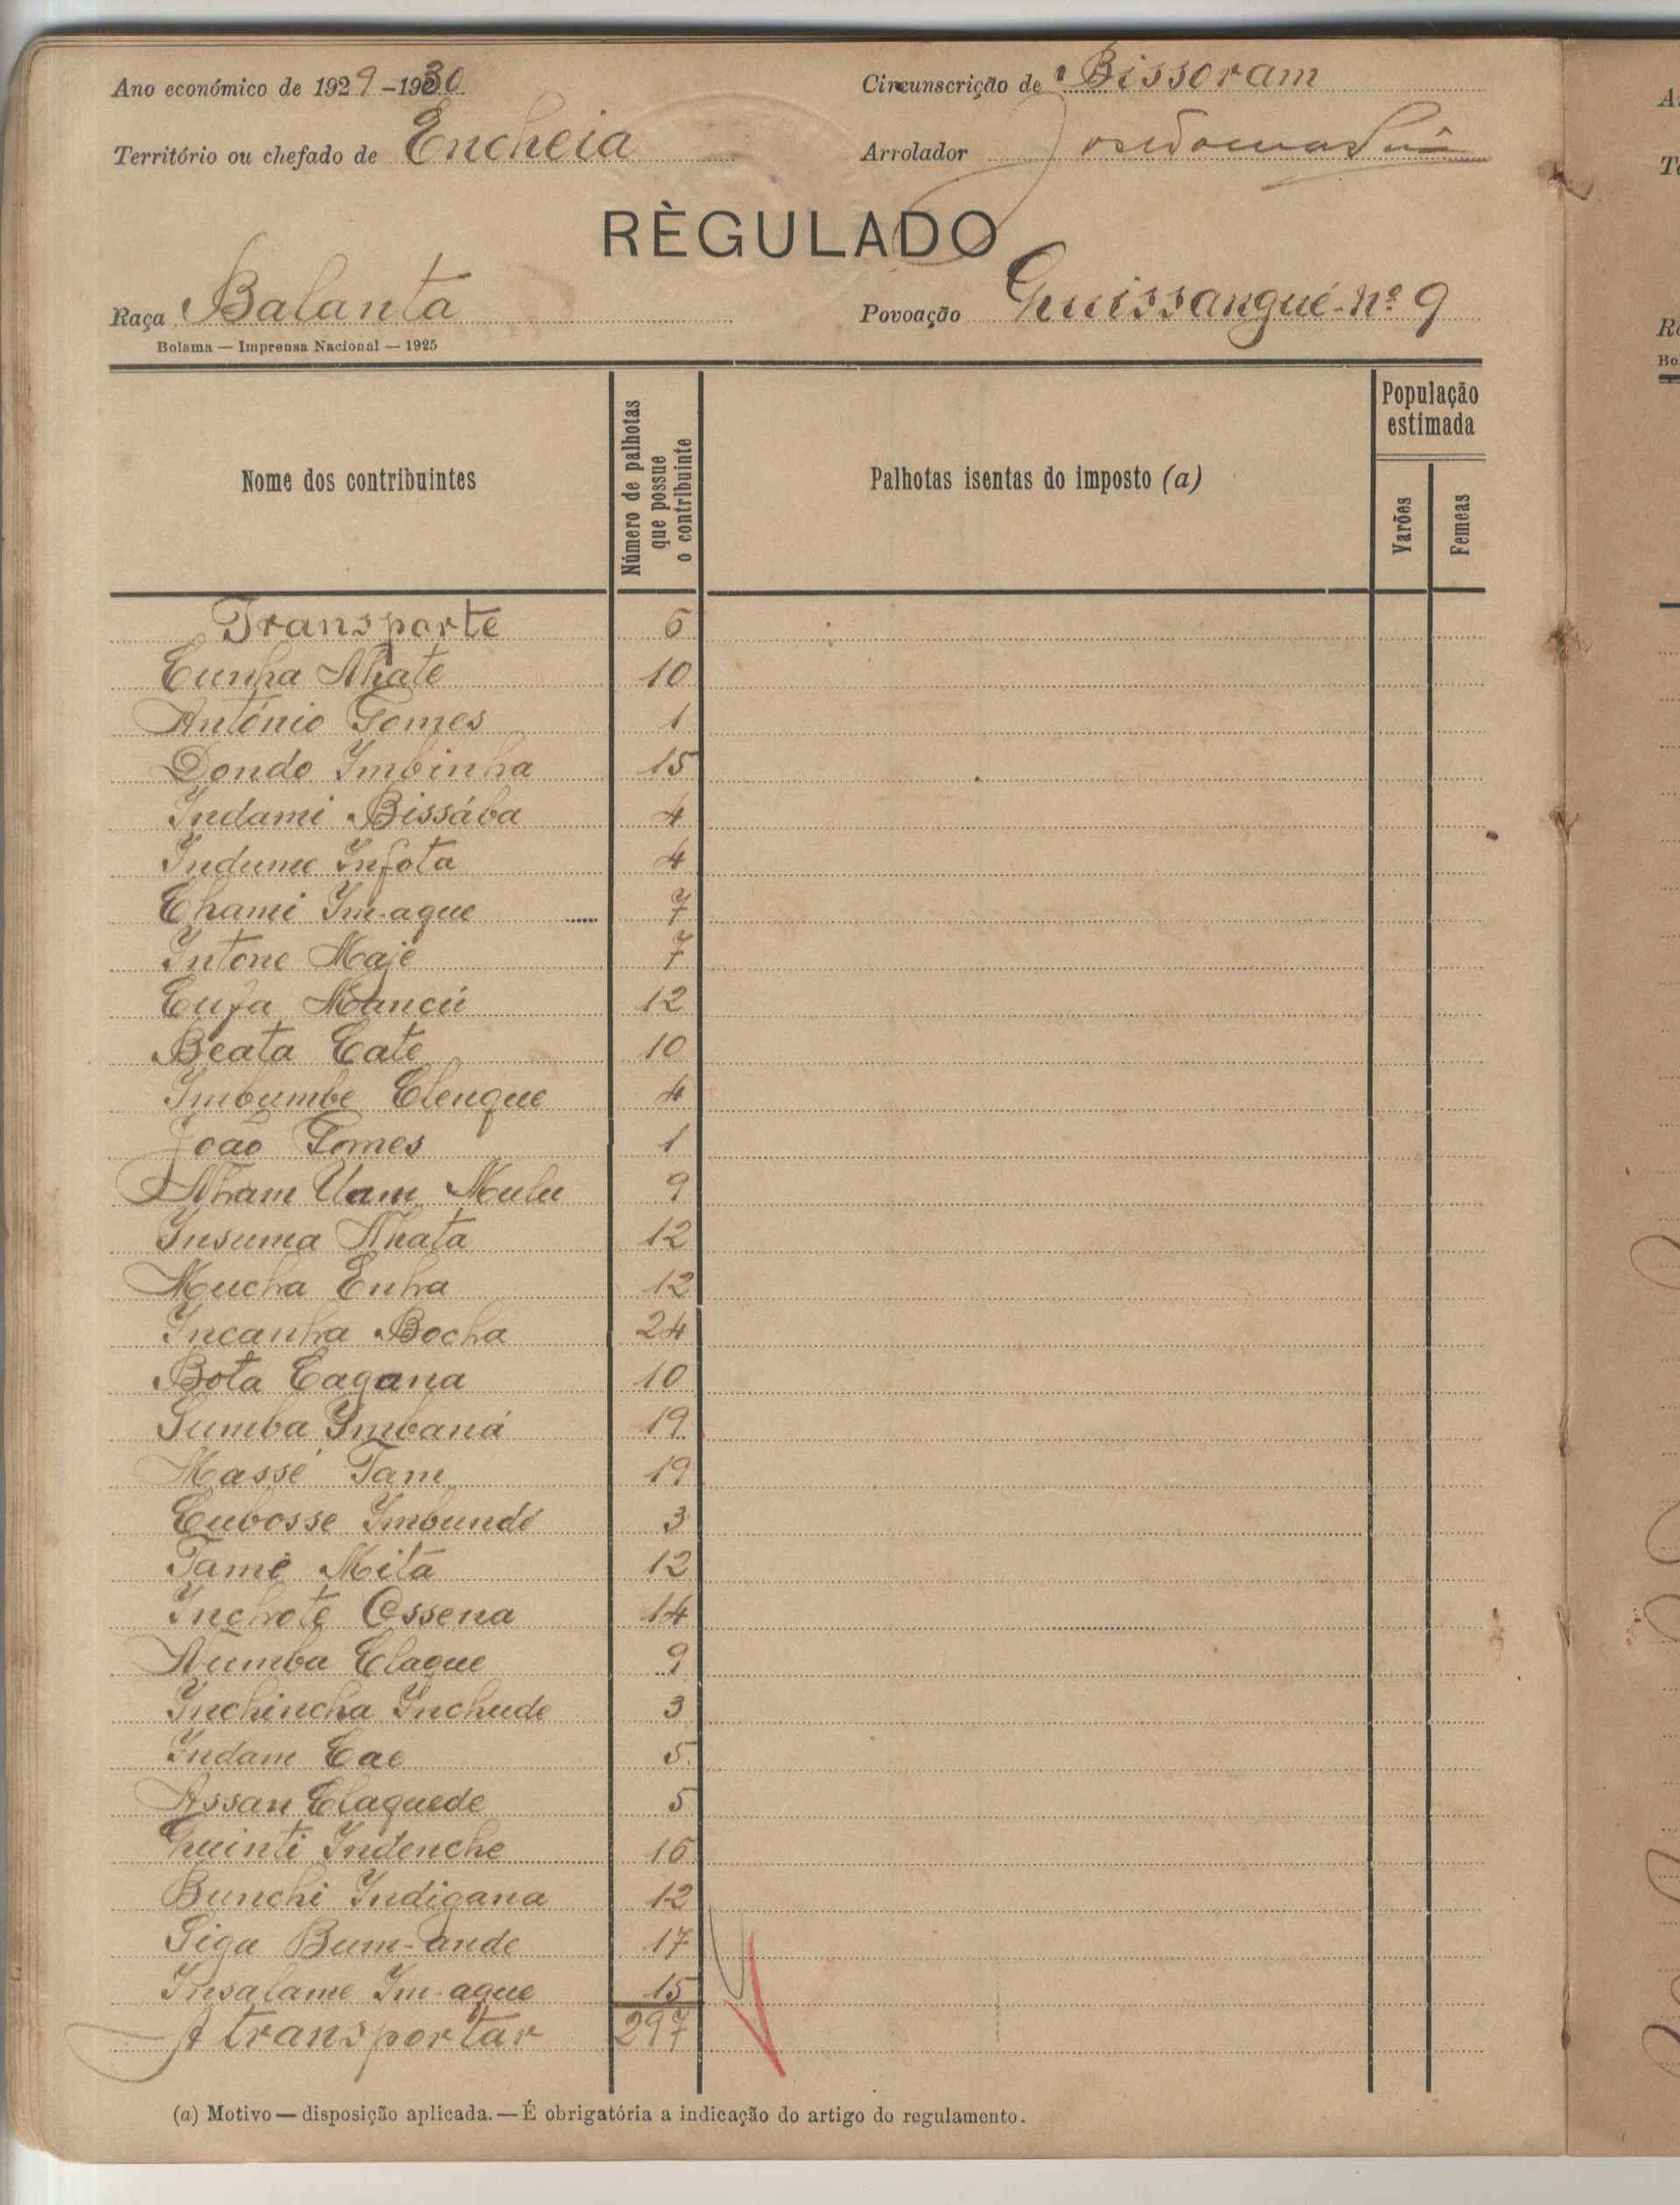 Ano económico de 1929-1930
Circunscrição de Bissoram
Território ou chefado de Encheia
Arrolador
RÈGULADO
Raça Balanta
Povoação Guissangué-nº 9
Bolama — Imprensa Nacional — 1925
Nome dos contribuintes
Número de palhotas que possue o contribuinte
Palhotas isentas do imposto (a)
População estimada
Varões
Femeas
Transporte 6
Cunha Nhate 10
António Gomes 1
Dondo Imbinha 15
Indami Bissába 4
Indume Infota 4
Chami Im-aque 7
Intone Maje 7
Cufa Mancú 12
Beata Cate 10
Imbumbe Clenque 4
João Gomes 1
Nham Uam Mulu 9
Insuma Nhata 12
Mucha Enha 12
Incanha Bocha 24
Bota Cagana 10
Sumba Imbaná 19
Massé Tam 19
Cubosse Imbundé 3
Tame Mita 12
Inchote Ossena 14
Numba Claque 9
Inchincha Inchude 3
Indam Cae 5
Assan Claquede 5
Quinti Indenche 16
Bunchi Indigana 12
Siga Bum-ande 17
Insalame Im-aque 15
A transportar 297
(a) Motivo — disposição aplicada. — É obrigatória a indicação do artigo do regulamento.